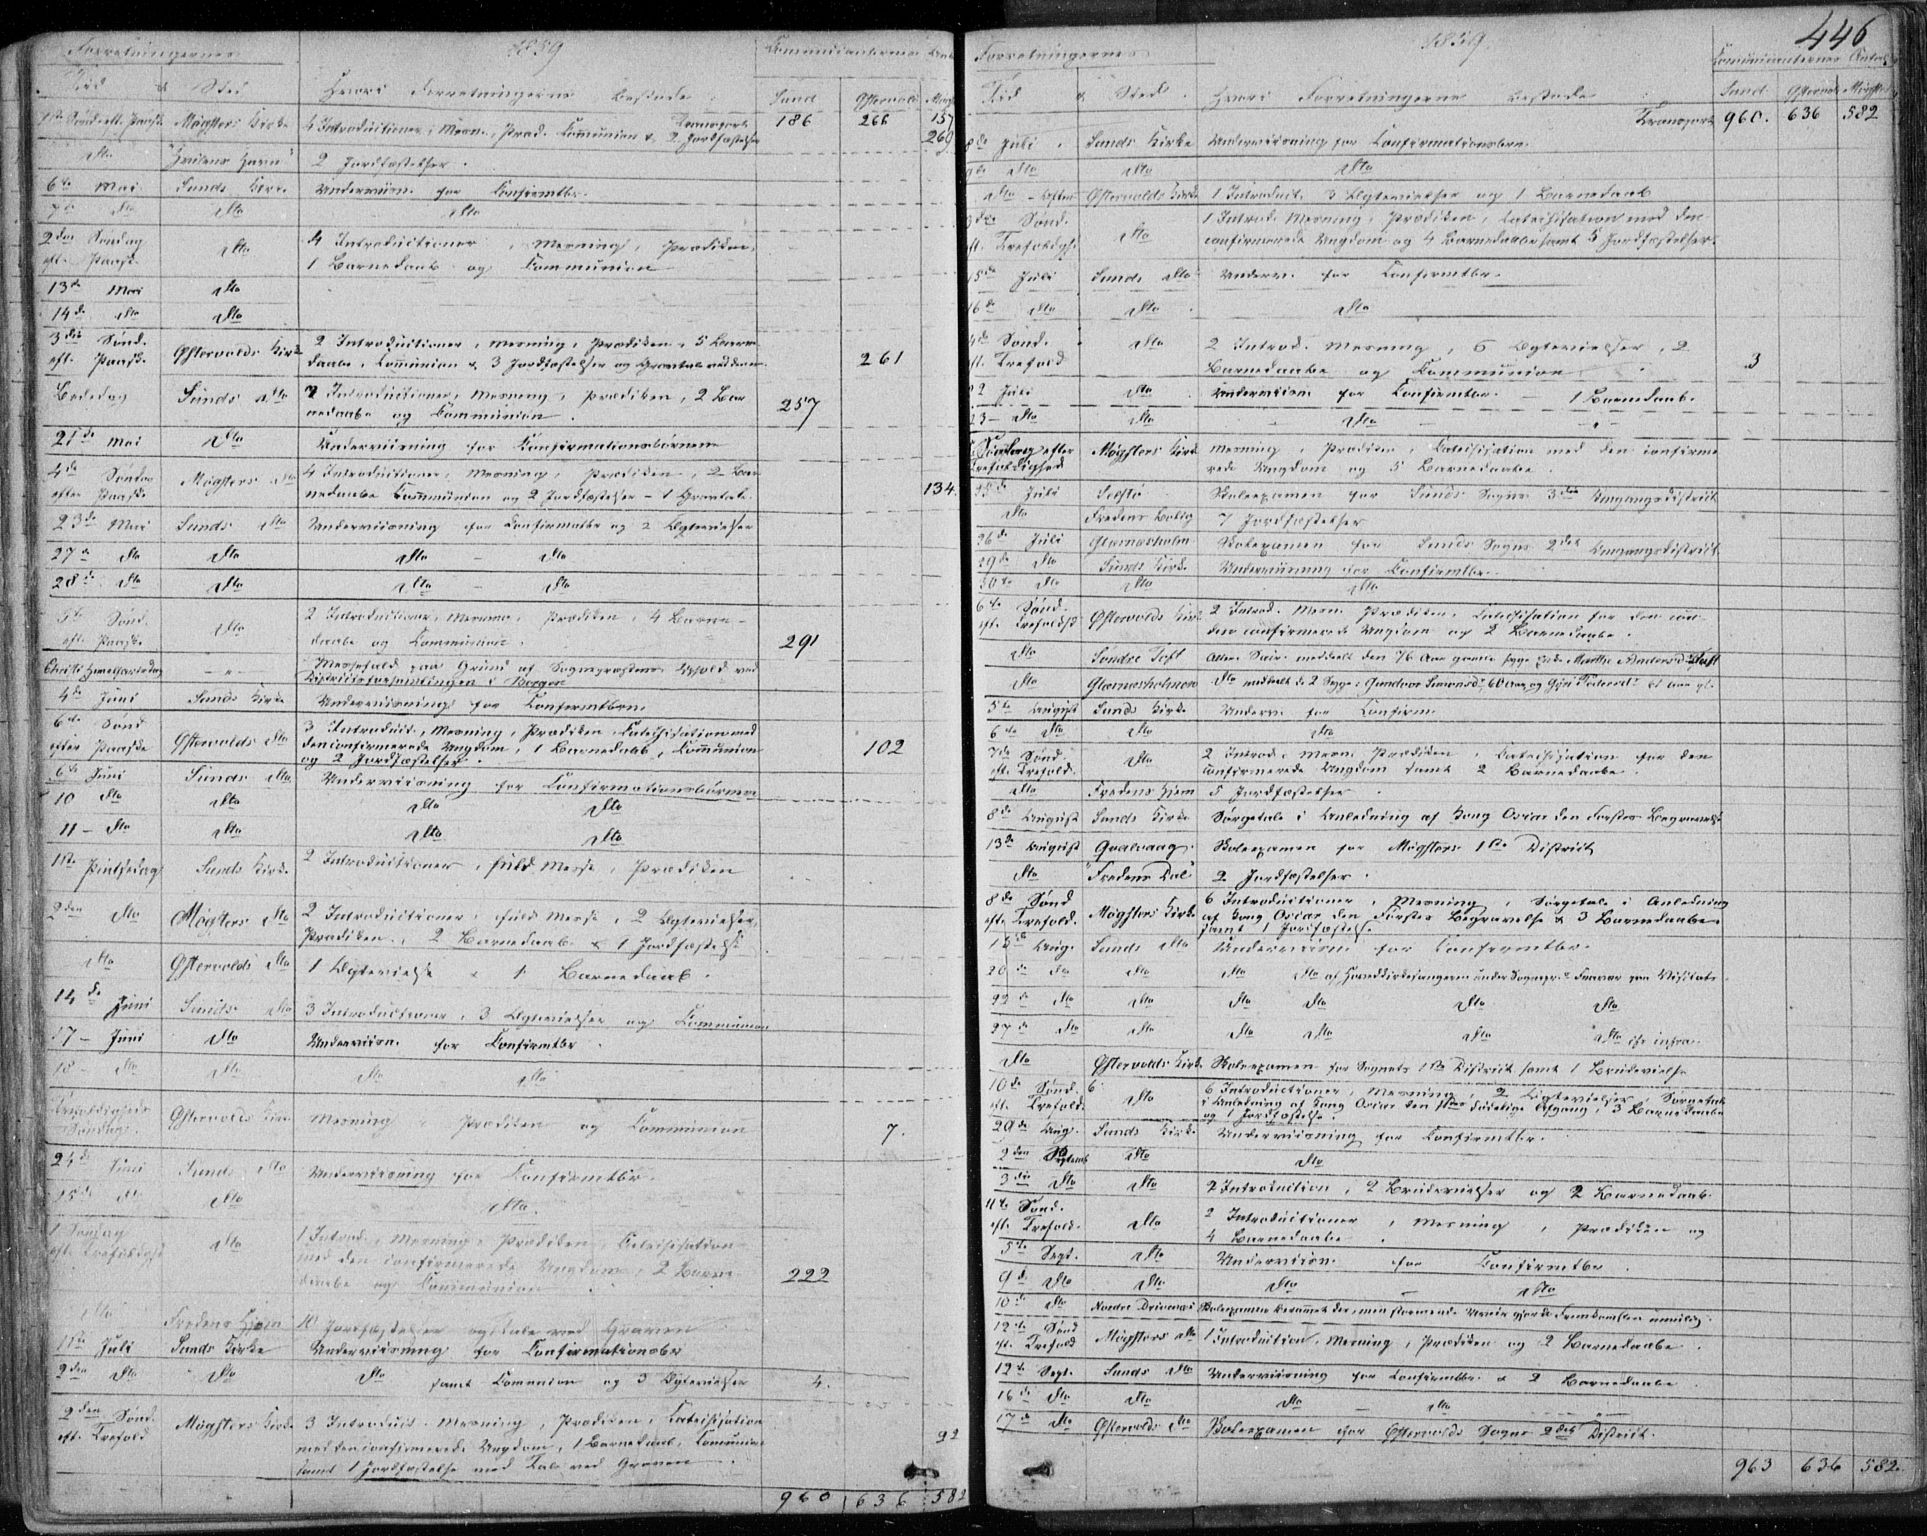 Forretningernes
1859
Communicanternes Antal
Tid & Sted
Hvori Forretningerne bestode.
Sund Østervold Møgst
Transport 186 266 157
1ste Sønd. eft. Paaske Møgsters Kirke 4 Introductioner, Mesn., Præd. Communion & 2 Jordfæstelser
dto 2 Jordfæstelser.
6te Mai Sunds Kirke Underviisn. for Confirmtbr.
7de dto dto dto
2den Søndag eft. Paaske dto 4 Introductioner, Mesning, Prædiken,
1 Barnedaab og Communion
13de Mai dto
14de dto dto
3die Sønd. eft. Paaske Østervolds Kirke 2 Introductioner, Mesning, Prædiken, 5 Barne-
daabe, Communion & 3 Jordfæstelser og 261
Bededag Sunds dto 7 Introductioner, Mesning, Prædiken, 2 Bar
nedaabe og Communion. 257
21de Mai dto Underviisning for Confirmationsbørnene
4de Søndag efter Paaske Møgsters dto 4 Introductioner, Mesning, Prædiken, 2 Bar
nedaabe Communion og 2 Jordfæstelser – 1 Gravtale. 134.
23de Mai Sunds dto Underviisning for Confirmatbr og 2 Ægtevielser
27de dto dto dto – dto
28de dto dto dto – dto
5te Sønd. eft. Paaske dto 2 Introductioner, Mesning, Prædiken, 4 Barne-
daabe og Communion. 291
Christi Himmelfartsdag – " – Messefald paa Grund af Sognepræstens Ophold ved
Districtsforsamlingen i Bergen
4de Juni Sunds Kirke Underviisning for Confirmtbrn.
6te Sønd efter Paaske Østervolds dto 3 Introduct., Mesning, Prædiken Catechisation med
den confirmerede Ungdom, 1 Barnedaab, Communion 102
og 2 Jordfæstelser.
6te Juni Sunds dto Underviisning for Confirmationsbørnene
10 dto dto dto dto
11 – dto dto dto dto
1ste Pintsedag Sunds Kirke 2 Introductioner, fuld Messe, Prædiken
2den dto Møgsters dto 2 Introductioner, fuld Messe, 2 Ægtevielser,
Prædiken, 2 Barnedaab & 1 Jordfæstelse
dto Østervolds dto 1 Ægtevielse & 1 Barnedaab.
14de Juni Sunds dto 3 Introductioner, 3 Ægtevielser og Communion
17 – Juni dto Underviisn. for Confirmtbr.
18 – dto dto dto dto
Trefoldigheds Søndag. Østervolds Kirke Mesning, Prædiken og Communion 7.
24de Juni Sunds dto Underviisning for Confirmtbr.
25de dto dto dto.
1 Søndag eft. Trefoldighd dto 1 Introd., Mesning, Prædiken, Catechisation
med den confirmerede Ungdom, 2 Barne-
daabe og Communion. 222
dto Fredens Hjem 10 Jordfæstelser og tale ved Graven
1ste Juli Sunds Kirke Underviisning for Confirmationsbr
2den dto dto dto samt Communion og 3 Ægtevielser 4.
2den Sønd. eft. Trefold Møgsters Kirke 3 Introduct. Mesning, Prædiken, Catechisation
med den confirmerede Ungdom, 1 Barnedaab, Communion 92
samt 1 Jordfæstelse med Tale ved Graven.
960 636 582
446
Forretningernes
1859.
Communicanternes Antal
Tid & Sted Hvori Forretningerne bestode Sund Østervold Møgster
Transport 960. 636 582
8de Juli. Sunds Kirke Underviisning for Confirmationsbrn.
9de dto dto dto
dto – Østervolds Kirke 1 Introduct. 3 Ægtevielser og 1 Barnedaab
3die Sønd. eft. Trefoldighd dto 1 Introd. Mesning, Prædiken, Catechisation med den
confirmerede Ungdom og 4 Barnedaabe samt 5 Jordfæstelser.
15de Juli Sunds dto Underv. for Confirmtbr.
16de dto dto dto
4de Sønd. eft. Trefold dto 2 Introd. Mesning, 6 Ægtevielser, 2
Barnedaabe og Communion. 3
22 Juli dto Underviisn for Confirmtbr. – 1 Barnedaab.
23 – dto dto dto – " –
Søndag efter Trefoldighed Møgsters Kirke Mesning, Prædiken, Catechisation med den confirme
rede Ungdom og 5 Barnedaabe.
25de Juli Selstø Skoleexamen for Sunds Sogns 3die Omgangsdistrict
dto Fredens Bolig 7 Jordfæstelser
26de Juli Glesnesholm Skoleexamen for Sunds Sogns 2det Omgangsdistrict
29de dto Sunds Kirke Underviisning for Confirmtbr.
30te dto dto dto
6te Sønd. eft. Trefoldhd Østervolds Kirke 2 Introd. Mesn. Prædiken, Catechisation for den con
den confirmerede Ungdom og 2 Barnedaabe.
dto Søndre Toft meddeelt den 76 Aar gamle syge Marthe Andersd. Toft
dto Glesnesholmen dto meddeelt de 2 Syge: Gundvor Simonsd. 60 Aar og
5te August Sunds Kirke Underv. for Confirm.
6te dto dto dto
7de Sønd. eft. Trefold. dto 2 Introd. Mesn. Prædiken, Catechisation for den
confirmerede Ungdom samt 2 Barnedaabe.
dto Fredens Hjem 5 Jordfæstelser.
8de August Sunds Kirke Sørgetale i Anledning af Kong Oscar den Førstes Begravelse
13de August Qvalvaag. Skoleexamen for Møgsters 1ste District
dto "Fredens Dal" 2 Jordfæstelser.
8de Sønd eft. Trefold. Møgsters Kirke 6 Introductioner, Mesning, Sørgetale i Anledning
af Kong Oscar den Førstes Begravelse & 3 Barnedaabe.
samt 1 Jordfæstelse.
Aug. Sunds dto Underviisn for Confirmtbr.
20de dto dto dto dto af Hovedkirkesangeren under Sognepr. Fravær paa Visitats
22de dto dto dto dto dto dto
27de dto dto dto dto dto dto cfr infra.
dto Østervolds Kirke Skoleexamen for Sognets 1ste District samt 1 Brudevielse
10de Sønd. eft. Trefold. dto 6 Introductioner, Mesning, 2 Ægtevielser, Sørgetale
i Anledning af Kong Oscar den Førstes Afgang, 3 Barnedaabe
og 1 Jordfæstelse.
29de Aug. Sunds Kirke Underviisning for Confirmtbr.
2den Septemb dto dto
3die dto dto 2 Introduction, 2 Brudevielser og 2 Barnedaab.
11te Sønd. eft. Trefold. dto 2 Introductioner, Mesning, Prædiken og
4 Barnedaabe.
5te Sept. dto Underviisn. for Confirmtbr.
9de dto dto dto – dto
10de dto Nordre Skoleexamen berammet der, men stormende Veir gjorde Fremkomsten umulig.
12te Sønd eft. Trefold Møgsters dto 1 Introduction, Mesning, Prædiken og 2 Barnedaabe.
12te Sept. Sunds dto Underviisning for Confirmtbr. & 2 Barnedaabe.
16de dto dto dto – dto
17de dto Østervolds dto Skoleexamen for Østervolds Sogns 2det District.
963 636 582.